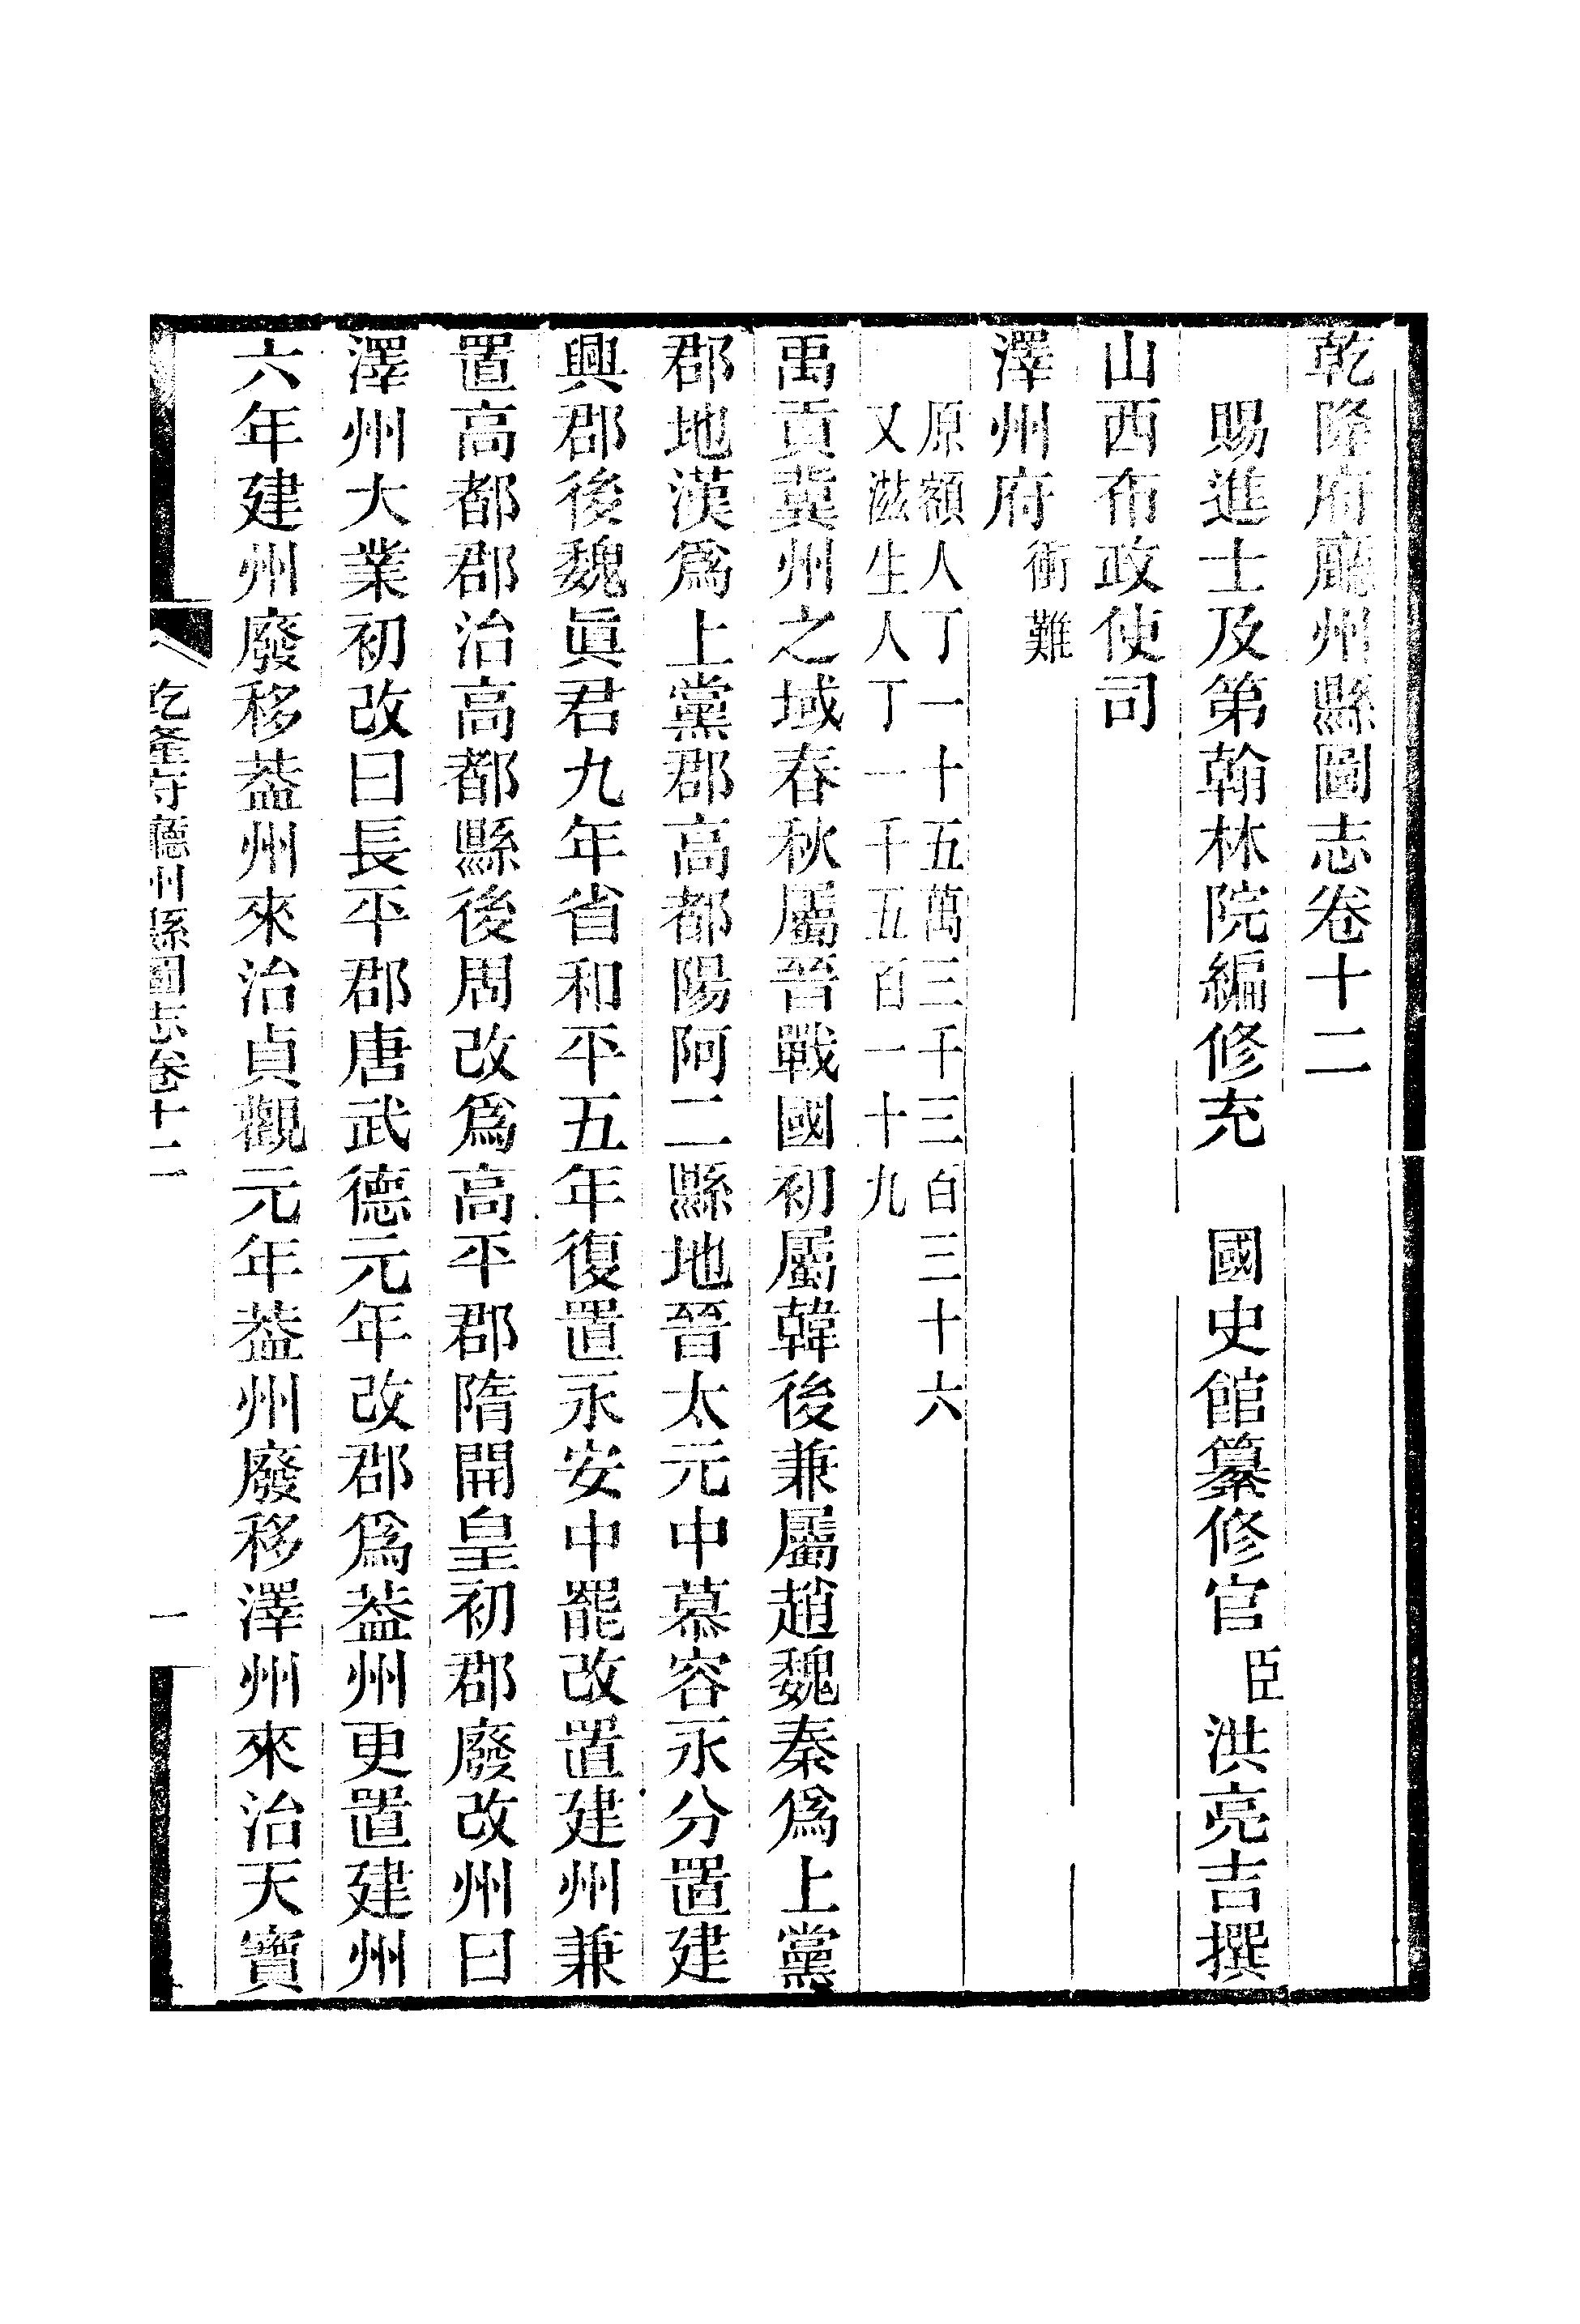 乾隆府廳州縣圖志卷十二
賜進士及第翰林院編修充　國史館纂修官臣洪亮吉撰
山西布政使司
澤州府衝難
原額人丁一十五萬三千三百三十六
又滋生人丁一千五百一十九
禹貢冀州之域春秋屬晉戰國初屬韓後兼屬趙魏秦爲上黨
郡地漢爲上黨郡高都陽阿二縣地晉太元中慕容永分置建
興郡後魏眞君九年省和平五年復置永安中罷改置建州兼
置高都郡治高都縣後周改爲高平郡隋開皇初郡廢改州曰
澤州大業初改曰長平郡唐武德元年改郡爲葢州更置建州
六年建州廢移葢州來治貞觀元年葢州廢移澤州來治天寶
乾隆府廳州縣圖志卷十二
一